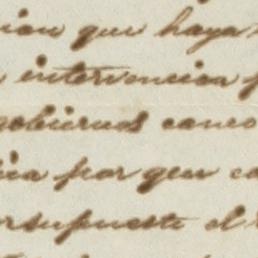 ion que haya
intervencion p
gobiernos como
ia por que co
rsupuesto el